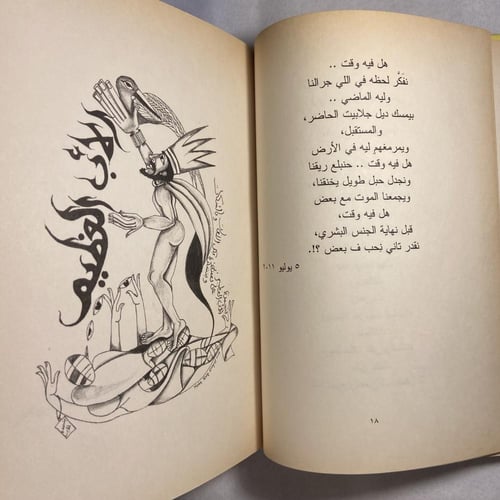 هل فيه وقت ..
نفكَّر لحظه في اللي جرالنا
وليه الماضي ..
بيمسك ديل جلابيت الحاضر،
والمستقبل،
ويمرمغهم ليه في الأرض
هل فيه وقت .. حنبلع ريقنا
ونجدل حبل طويل يخنقنا،
ويجمعنا الموت مع بعض
هل فيه وقت،
قبل نهاية الجنس البشري،
نقدر تاني نحب ف بعض ؟!.
٥ يوليو ٢٠١١
١٨
العظيم